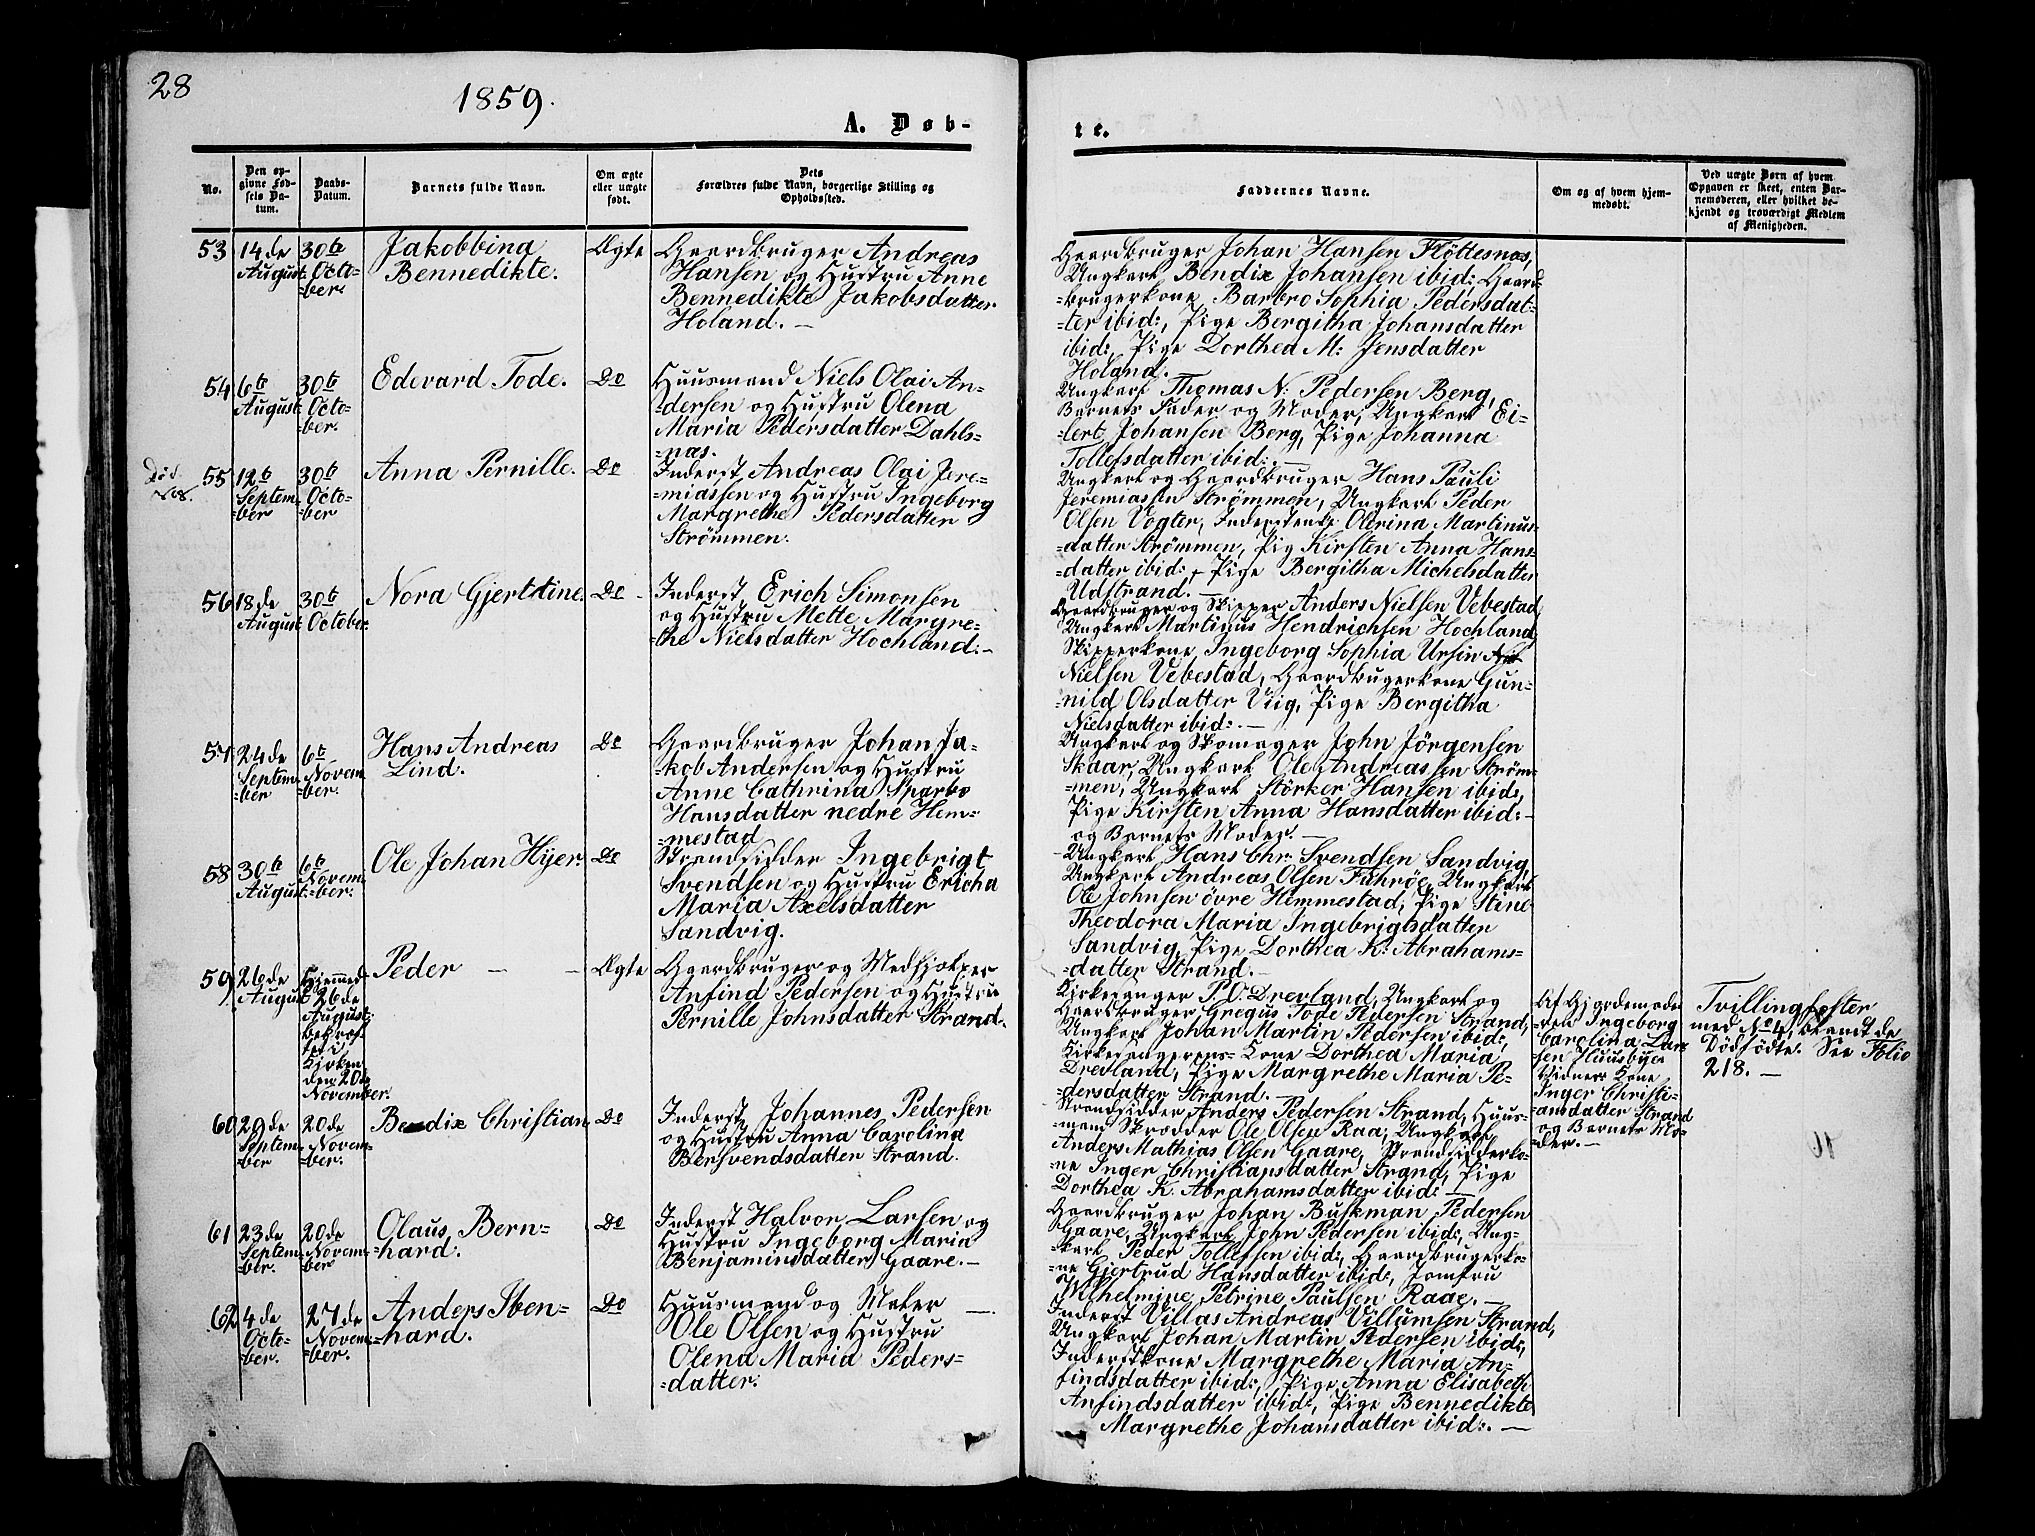 28
1859.
A. Døb-
te.
No.
Den op-
givne Fød-
sels Da-
tum.
Daabs-
Datum.
Barnets fulde Navn.
Om ægte
eller uægte
født.
Dets
Forældres fulde Navn, borgerlige Stilling og
Opholdssted.
Faddernes Navne.
Om og af hvem hjem-
medøbt.
Ved uægte Børn af hvem
Opgaven er skeet, enten Bar-
nemoderen, eller hvilket be-
kjendt og troværdigt Medlem
af Menigheden.
53
14de
August
30te
Octo-
=ber.
Jakobbina
Bennedikte.
Ægte
Gaardbruger Andreas
Hansen og Hustru Anne
Bennedikte Jakobsdatter
Holand. —
Gaardbruger Johan Hansen Flöttesnæs,
Ungkarl Bendix Johansen ibid: Gaard-
=brugerkone Barbro Sophia Pedersdat-
=ter ibid:, Pige Bergitha Johansdatter
ibid:, Pige Dorthea M: Jensdatter
Holand.
54
6te
August
30te
Octo-
=ber.
Edevard Tode.
Do
Huusmand Niels Olai An-
=dersen og Hustru Olena
Maria Pedersdatter Dahls-
=næs.
Ungkarl Thomas N: Pedersen Berg,
Barnets Fader og Moder, Ungkarl Ei-
=lert Johansen Berg, Pige Johanna
Tollefsdatter ibid:. —
Död
55
12te
Septem-
=ber
30te
Octo-
=ber
Anna Pernille.
Do
Inderst Andreas Olai Jere-
=miassen og Hustru Ingeborg
Margrethe Pedersdatter
Strömmen.
Ungkarl og Gaardbruger Hans Pauli
Jeremiassen Strömmen, Ungkarl Peder
Olsen Vogter, Inderstenke Olerina Martinus-
=datter Strömmen, Pig Kirsten Anna Hans-
=datter ibid:, Pige Bergitha Michelsdatter
Udstrand. —
56
18de
August
30te
October.
Nora Gjertine.
Do
Inderst Erich Simonsen
og Hustru Mette Margre-
=the Nielsdatter Hochland:—
Gaardbruger og Skipper Anders Nielsen Vebestad,
Ungkarl Martinus Hendrichsen Hochland,
Skipperkone Ingeborg Sophia Ursin
Nielsen Vebestad, Gaardbrugerkone Gun-
=nild Olsdatter Viig, Pige Bergitha
Nielsdatter ibid:. —
57
24de
Septem-
=ber
6te
Novem-
=ber.
Hans Andreas
Lind.
Do
Gaardbruger Johan Ja-
=kob Andersen og Hustru
Anne Cathrina Sparbo
Hansdatter nedre Hem-
=mestad
Ungkarl og Skomager John Jörgensen
Skaar, Ungkarl Ole Andreassen Ström-
=men, Ungkarl Störker Hansen ibid:,
Pige Kirsten Anna Hansdatter ibid:-
og Barnets Moder. —
58
30te
August
6te
Novem-
=ber.
Ole Johan Hyer.
Do
Strandsidder Ingebrigt
Svendsen og Hustru Ericha
Maria Axelsdatter
Sandvig.
Ungkarl Hans Chr: Svendsen Sandvig,
Ungkarl Andreas Olsen Fahröe, Ungkarl
Ole Johnsen övre Hemmestad, Pige Stine
Theodora Maria Ingebrigtsdatter
Sandvig, Pige Dorthea K: Abrahams-
=datter Strand. —
59
26de
August
Hjemmed.
26de
August
bekræf-
tet i
Kirken
den 20de
November.
Peder — —
Ægte
Gaardbruger og Medhjælper
Anfind Pedersen og Hustru
Pernille Johnsdatter Strand.
Kirkesanger P. O. Drevland, Ungkarl og
Gaardbruger Gregus Tode Pedersen Strand,
Ungkarl Johan Martin Pedersen ibid:,
Kirkesangerens Kone Dorthea Maria
Drevland, Pige Margrethe Maria Pe-
=dersdatter Strand. —
Af Gjordemode-
ren Ingeborg
Carolina Lar-
sen Huusbyen
Vidner: Kone
Inger Christi-
=ansdatter Strand
og Barnets Mo-
=der. —
Tvilling efter
med No 4, blandt de
Dödfödte. See Folio
218. —
60
29de
Septem-
=ber
20de
Novem-
=ber.
Bendix Christian
Do
Inderst Johannes Pedersen
og Hustru Anna Carolina
Bersvendsdatter Strand.
Strandsidder Anders Pedersen Strand, Huus-
mand Skrædder Ole Olsen Raa, Ungkarl
Anders Mathias Olsen Gaare, Strandsidderko-
=ne Inger Christiansdatter Strand, Pige
Dorthea K. Abrahamsdatter ibid: —
61
23de
Septem-
=ber.
20de
Novem-
=ber
Olaus Bern-
=hard.
Do
Inderst Halvor Larsen og
Hustru Ingeborg Maria
Benjaminsdatter Gaare.—
Gaardbruger Johan Buskman Pedersen
Gaare, Ungkarl John Pedersen ibid:, Ung-
=karl Peder Tollefsen ibid:, Gaardbrugerko-
=ne Gjertrud Hansdatter ibid:, Jomfru
Wilhelmine Petrine Paulsen Raae. —
62
4de
Octo-
=ber.
27de
Novem-
=ber.
Anders Iben-
=hard.
Do
Huusmand og Maler —
Ole Olsen og Hustru
Olena Maria Peders-
=datter.
Inderst Villas Andreas Villumsen Strand,
Ungkarl Johan Martin Pedersen ibid:,
Inderstkone Margrethe Maria An-
findsdatter ibid:, Pige Anna Elisabeth
Anfindsdatter ibid:, Pige Bennedikte
Margrethe Johansdatter ibid:. —